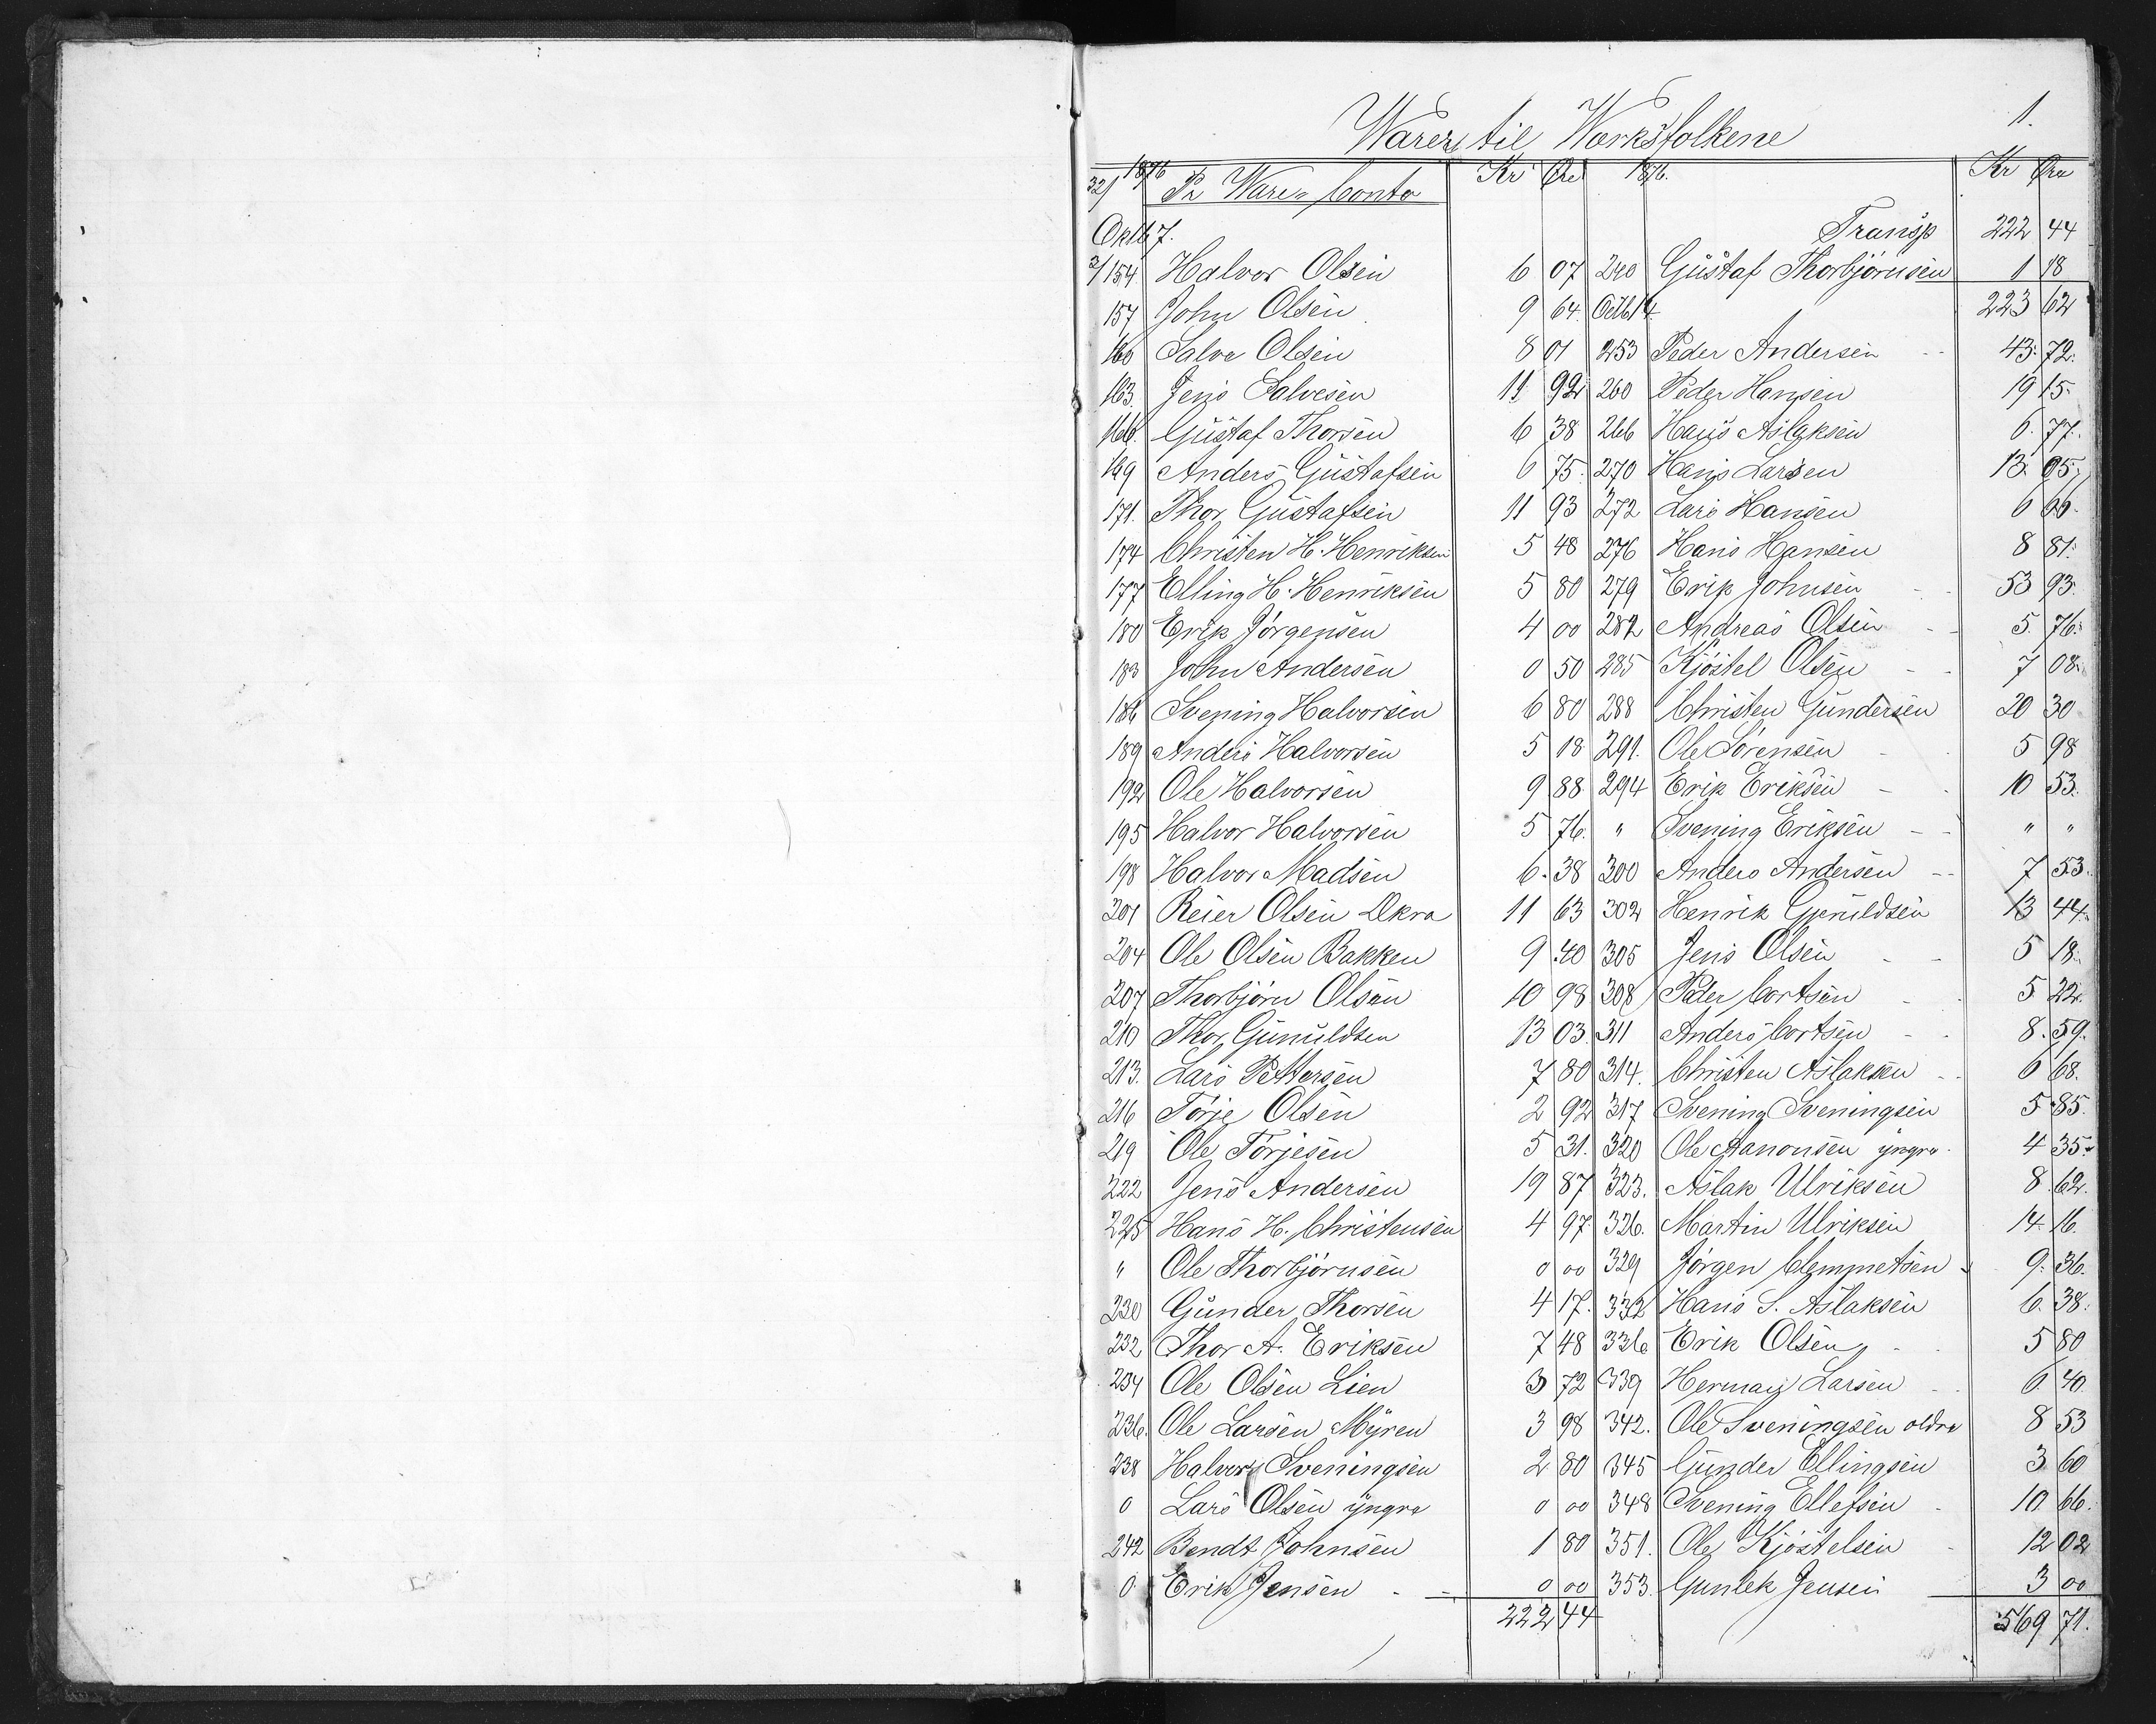 1.
Warer til Værksfolkene
32/ 1876 Pr Warer Conto Kr Øre
Oktb 7.
3/154 Halvor Olsen 6 07
157 John Olsen 9 64
160 Salve Olsen 8 01
163. Jens Salvesen 11 92
166. Gustaf Thorsen 6 38
169 Anders Gustafsen 6 75
171. Thor Gustafsen 11 93
174 Christen H. Henriksen 5 48
177 Elling H. Henriksen 5 80
180 Erik Jörgensen 4 00
183 John Andersen 0 50
186 Svening Halvorsen 6 80
189 Anders Halvorsen 5 18
192 Ole Halvorsen 9 88
195 Halvor Halvorsen 5 76.
198 Halvor Madsen 6. 38
201 Reier Olsen Økra 11 63
204 Ole Olsen Bakken 9 40
207 Thorbjörn Olsen 10 98
210 Thor Gunuldsen 13 03
213. Lars Pettersen 7 80
216 Törje Olsen 2 92
219 Ole Törjesen 5 31.
222 Jens Andersen 19 87
225 Hans H. Christensen 4 97
" Ole Thorbjörnsen 0 00
230 Gunder Thorsen 4 17.
232 Thor A. Eriksen 7 48
234 Ole Olsen Lien 3 72
236. Ole Larsen Myren 3 98
238 Halvor Sveningsen 2 80
0 Lars Olsen yngre 0 00
242 Bendt Johnsen 1 80
0 Erik Jensen 0 00
222 44
1876. Kr Øre
Transp 222 44
240 Gustaf Thorbjörnsen 1 18
Octb 14. 223 62
253 Peder Andersen 43. 72.
260 Peder Hansen 19 15.
266 Hans Aslaksen 6. 77.
270 Hans Larsen 13. 05.
272 Lars Hansen 6 66.
276 Hans Hansen 8 81.
279 Erik Johnsen 53 93.
282 Andreas Olsen 5. 76.
285 Kjöstel Olsen 7 08.
288 Christen Gundersen 20 30
291. Ole Sörensen 5 98
294 Erik Eriksen 10 53.
" Svening Eriksen " "
300 Anders Andersen 7 53.
302 Henrik Gjeruldsen 13 44.
305 Jens Olsen 5 18.
308 Peder Cortsen 5 22.
311 Anders Cortsen 8. 59.
314. Christen Aslaksen 6 68.
317 Svening Sveningsen 5 85.
320 Ole Aanonsen yngre 4 35.
323. Aslak Ulriksen 8. 62.
326. Martin Ulriksen 14. 16.
329 Jörgen Clemmetsen 9. 36.
332 Hans S. Aslaksen 6. 38.
336 Erik Olsen 5 80
339 Herman Larsen 6. 40.
342. Ole Sveningsen oldre 8 53
345 Gunder Ellingsen 3 60
348 Svening Ellefsen 10. 66.
351. Ole Kjöstelsen 12 02
353. Gunlek Jensen 3 00
569 71.